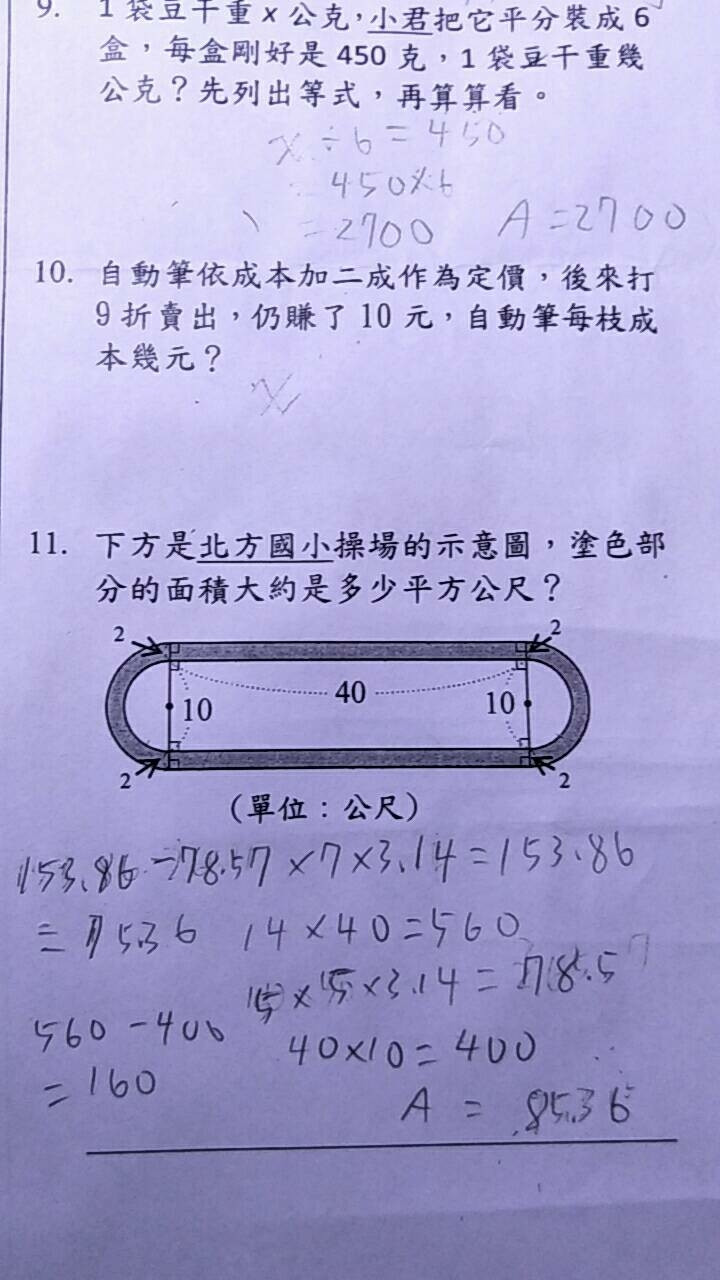 9. 1 袋豆干重 x 公克，小君把它平分裝成 6
盒，每盒剛好是 450 克，1 袋豆干重幾
公克？先列出等式，再算算看。
x ÷ 6 = 450
450 × 6
= 2700 A = 2700
10. 自動筆依成本加二成作為定價，後來打
9 折賣出，仍賺了 10 元，自動筆每枝成
本幾元？
x
11. 下方是北方國小操場的示意圖，塗色部
分的面積大約是多少平方公尺？
2 2
40
10 10
2 2
(單位：公尺)
153.86 - 78.5 7 × 7 × 3.14 = 153.86
= 75.36 14 × 40 = 560
5 × 5 × 3.14 = 78.5
560 - 400
40 × 10 = 400
= 160
A =